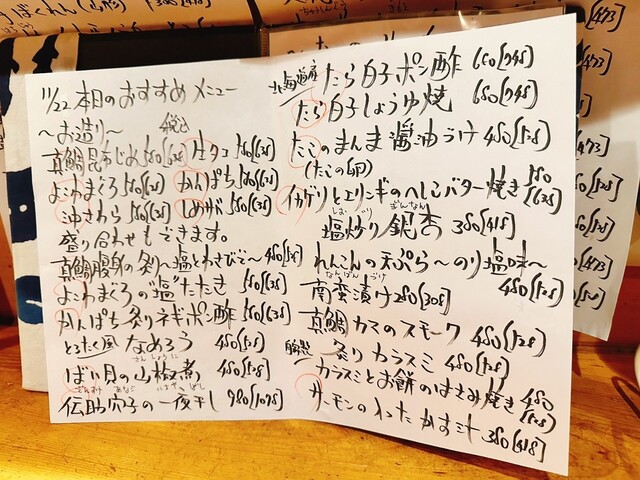 11/22 本日のおすすめメニュー
〜お造り〜 税込
真鯛昆布じめ580[638] 生タコ580[638]
よこわまぐろ580[638] かんぱち580[638]
油さわら580[638] しめサバ580[638]
盛り合わせもできます。
真鯛腹身の炙り〜塩とわさびで〜480[528]
よこわまぐろの"塩"たたき580[638]
かんぱち炙りネギポン酢580[638]
とろたく風なめろう480[528]
ばい貝の山椒煮480[528]
伝助穴子の一夜干し980[1078]
北海道産たら白子ポン酢680[748]
たら白子しょうゆ焼680[748]
たこのまんま醤油づけ480[528]
(たこの卵)
イカゲソとエリンギのへしこバター焼き580[638]
塩炒り銀杏380[418]
れんこんの天ぷら〜のり塩味〜
480[528]
南蛮漬け280[308]
真鯛カマのスモーク480[528]
自家製炙りカラスミ480[528]
カラスミとお餅のはさみ焼き480[528]
サーモンの入ったかす汁380[418]